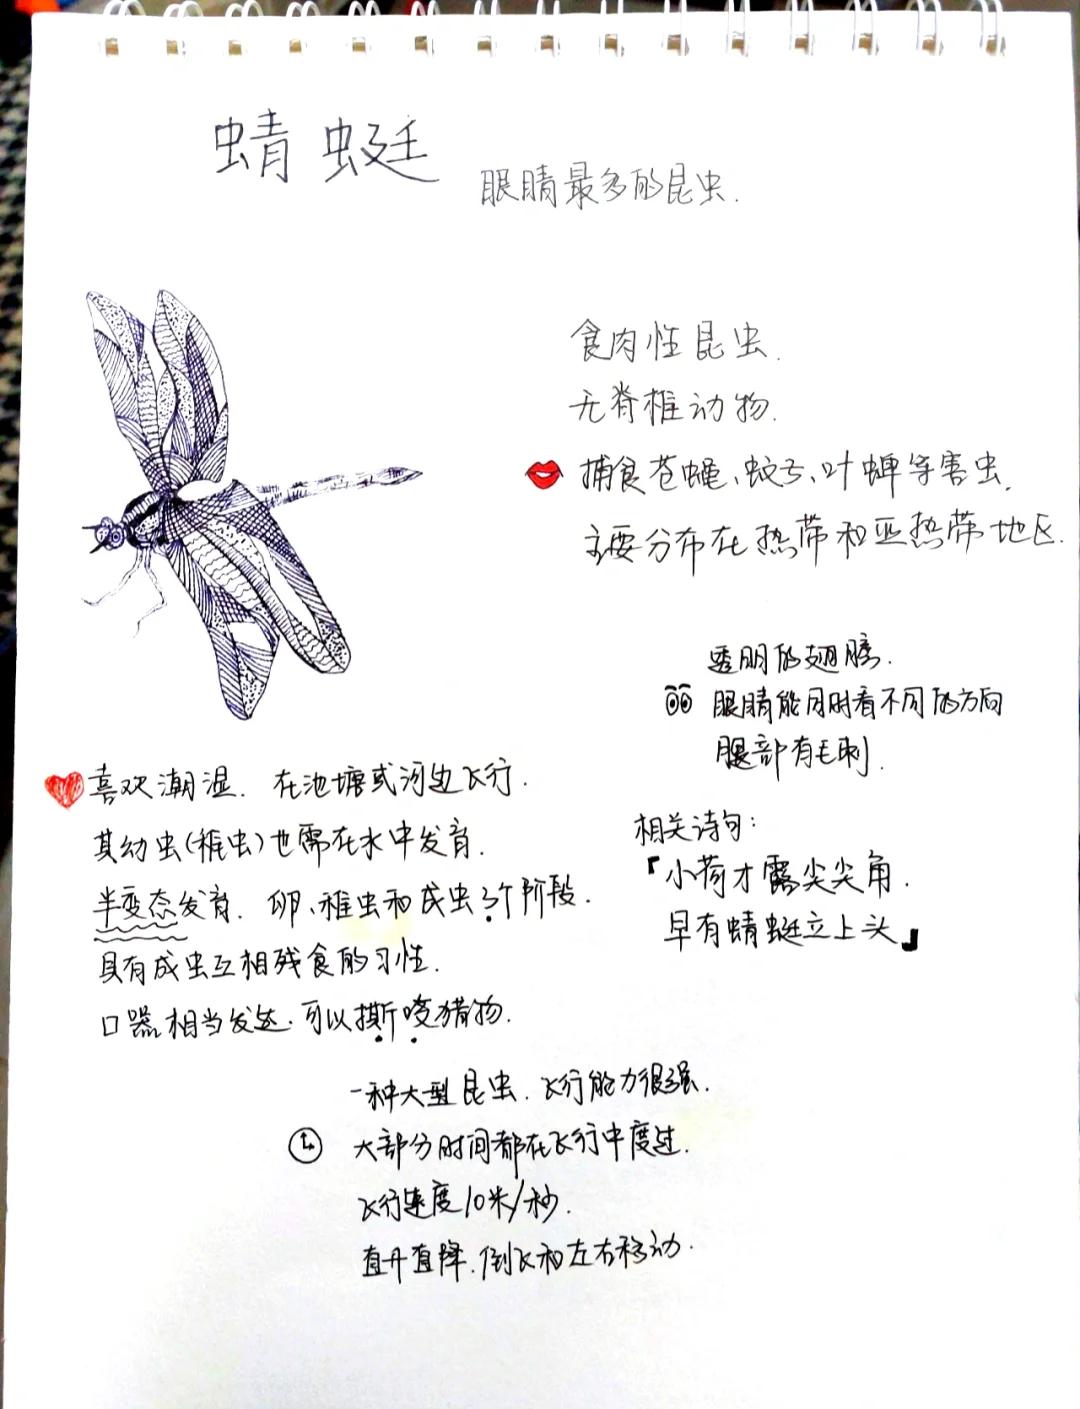 蜻蜓
眼睛最多的昆虫.
食肉性昆虫.
无脊椎动物.
捕食苍蝇、蚊子、叶蝉等害虫.
主要分布在热带和亚热带地区.
透明的翅膀.
眼睛能同时看不同的方向
腿部有毛刺.
喜欢潮湿. 在池塘或河边飞行.
其幼虫(稚虫)也需在水中发育.
半变态发育. 卵、稚虫和成虫3个阶段.
具有成虫互相残食的习性.
口器相当发达.可以撕咬猎物.
相关诗句:
「小荷才露尖尖角.
早有蜻蜓立上头」
一种大型昆虫.飞行能力很强.
大部分时间都在飞行中度过.
飞行速度10米/秒.
直升直降.倒飞和左右移动.